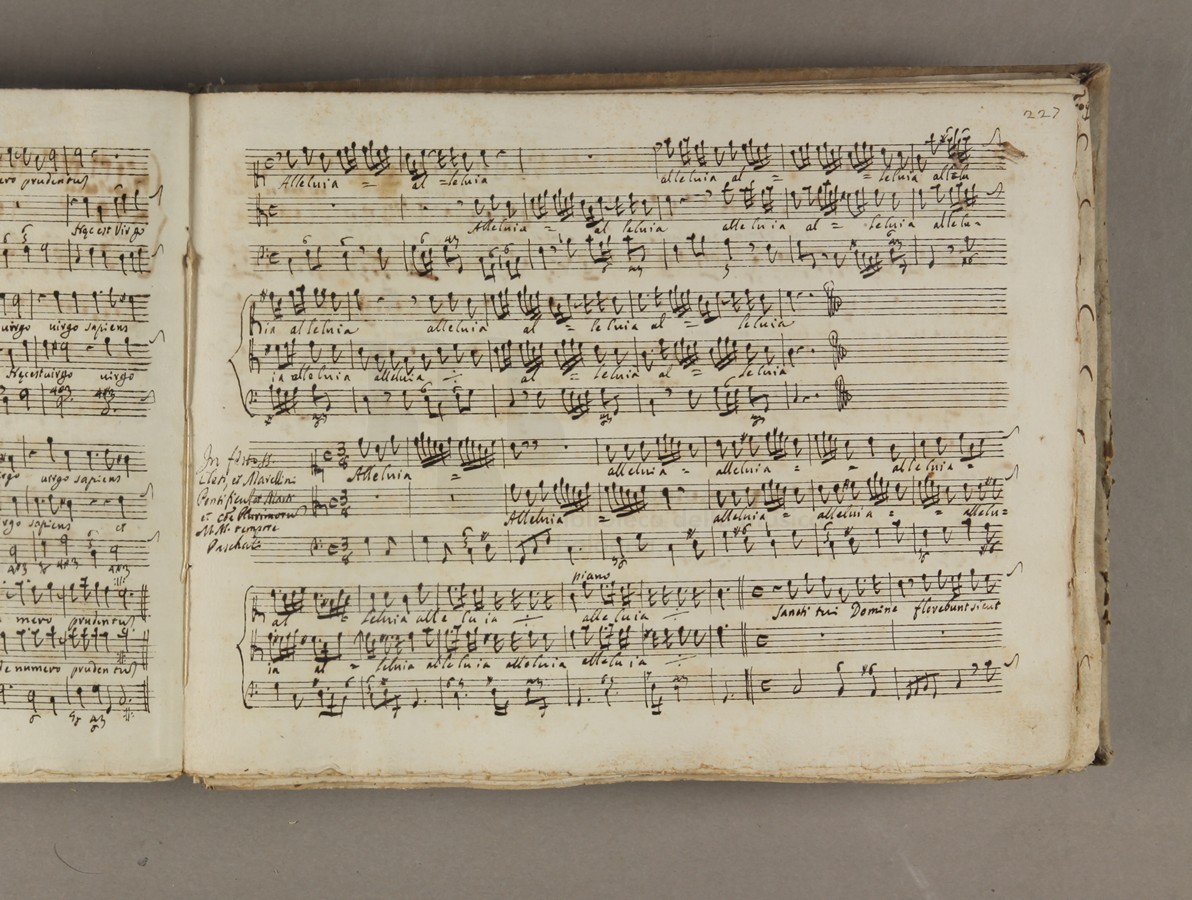 ero prudentuz
Hęc est Virgo
uirgo uirgo sapiens
Hęc est uirgo uirgo
uirgo sapiens
rgo sapiens et
mero prudentuz
de numero prudentuz
227
Alleluia = al = leluia alleluia al = = leluia allelu
Alleluia = al leluia alleluia al = leluia allelu-
ia alleluia alleluia al = leluia al = leluia
ia alleluia alleluia al = leluia al = leluia
In festo SS.
Cleti, et Marcellini
Pontificum et Mart.
et Plurimorum
M.M. tempore
Paschali
Alleluia = alleluia = alleluia = = alleluia =
Alleluia = alleluia = alleluia = = allelu=
piano
al = leluia alleluia alleluia Sancti tui Domine florebunt sicut
ia al = leluia alleluia alleluia alleluia